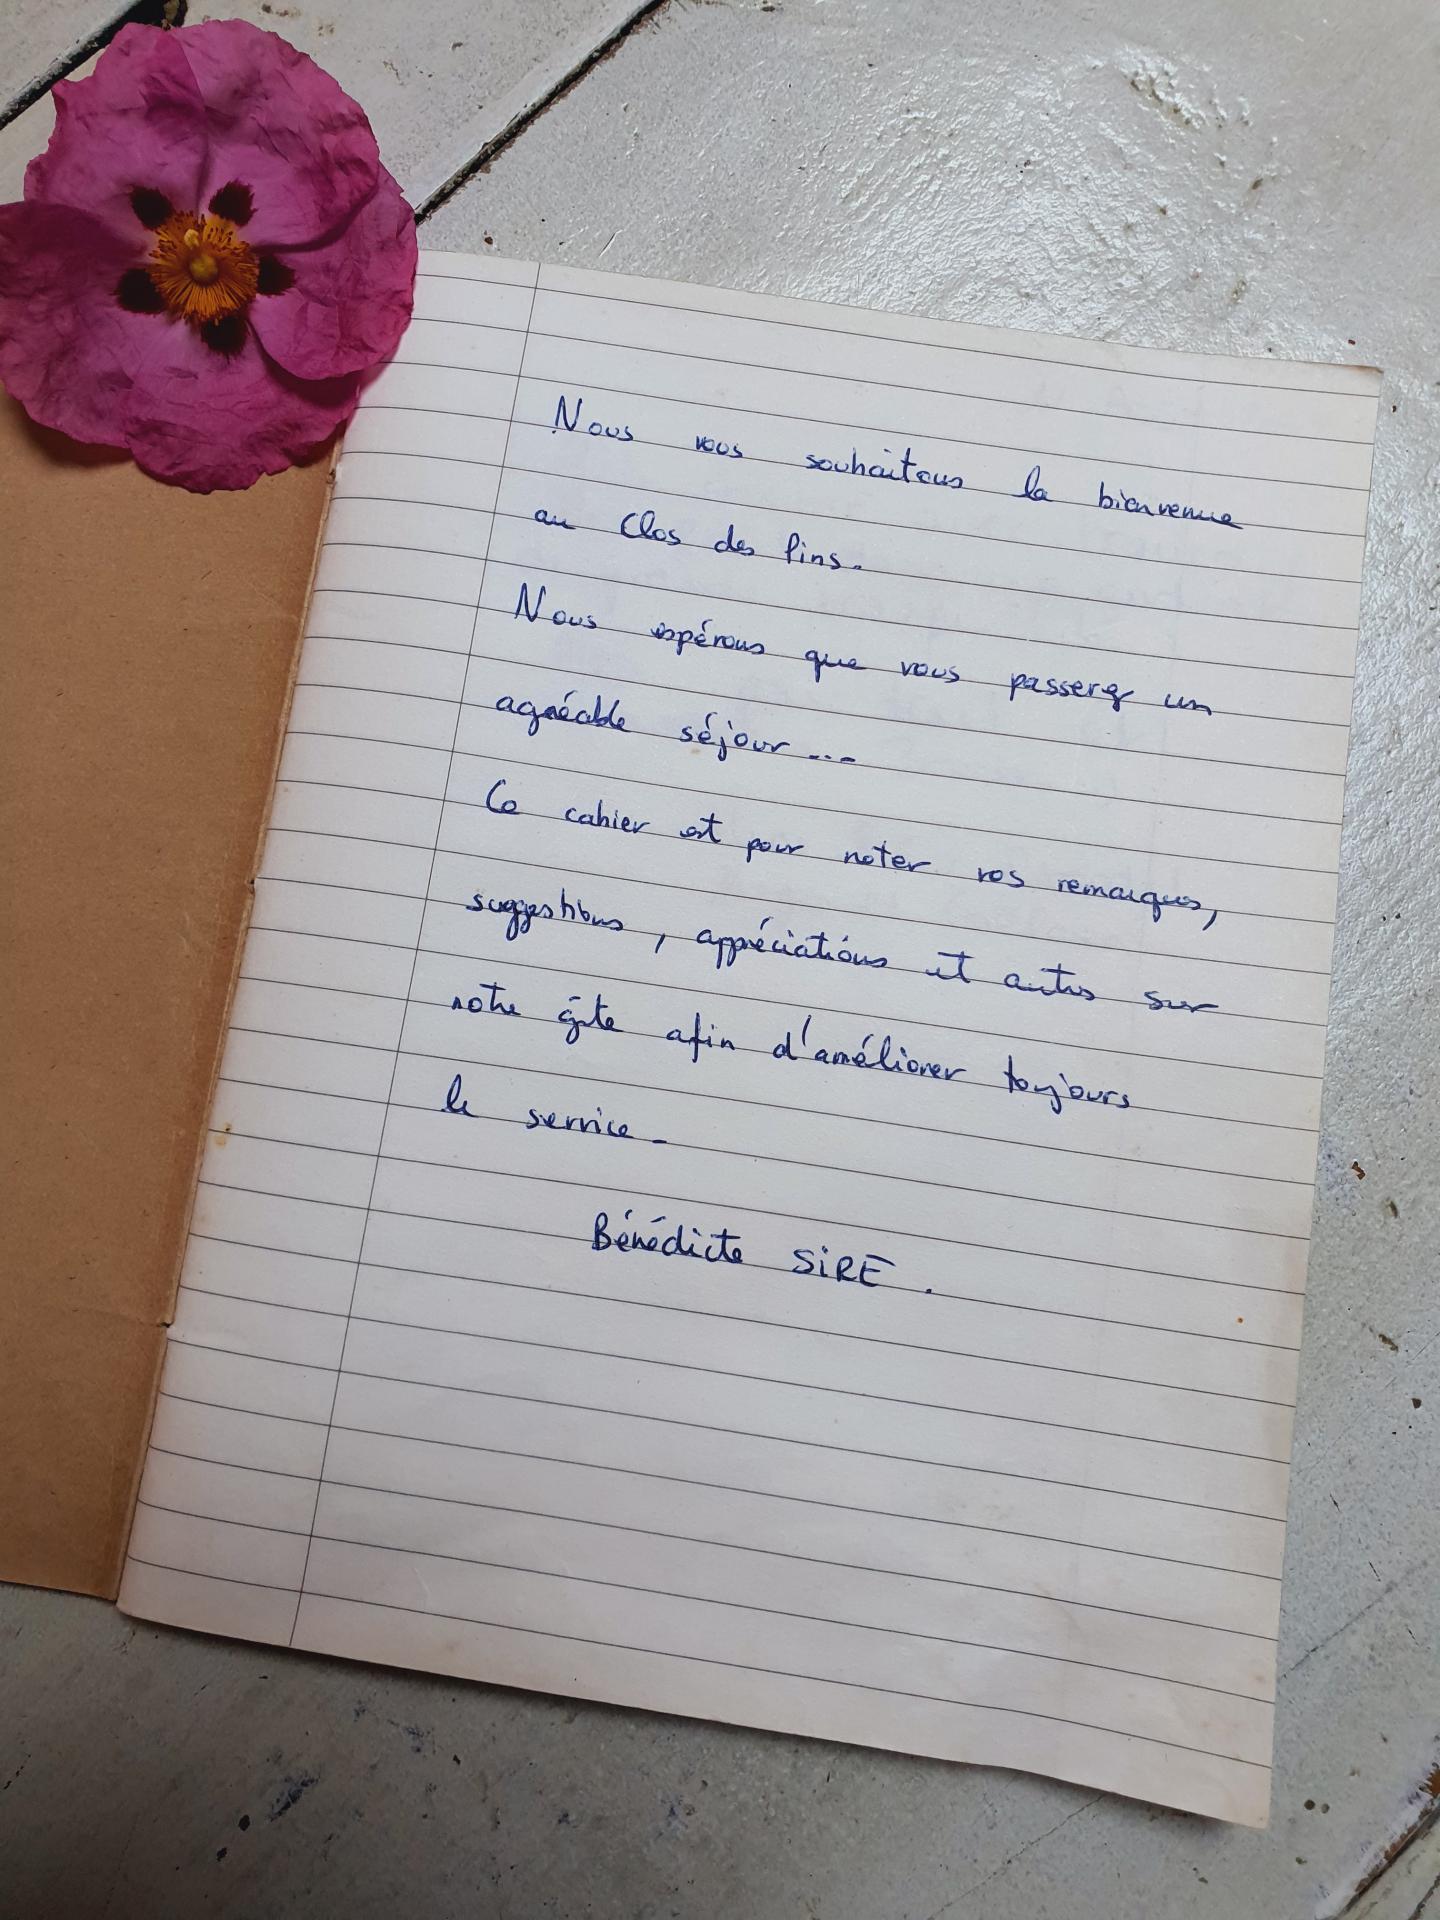 Nous vous souhaitons la bienvenue
au Clos des Pins.
Nous espérons que vous passerez un
agréable séjour...
Ce cahier est pour noter vos remarques,
suggestions, appréciations et autres sur
notre gîte afin d'améliorer toujours
le service.
Bénédicte SiRE.